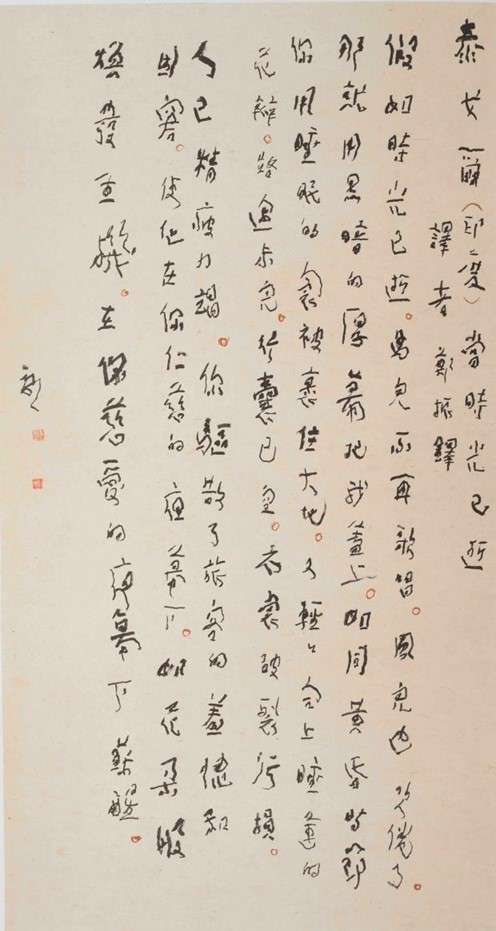 泰戈爾（印度）當時光已逝
譯者 鄭振鐸
假如時光已逝。鳥兒不再歌唱。風兒也吹倦了。
那就用黑暗的厚幕把我蓋上。如同黃昏時節
你用睡眠的衾被裹住大地。又輕〻合上睡蓮的
花瓣。路途未完。行囊已空。衣裳破裂污損。
人已精疲力竭。你驅散了旅客的羞愧和
困窘。使他在你仁慈的夜幕下。如花朵般
煥發生機。在你慈愛的夜幕下蘇醒。